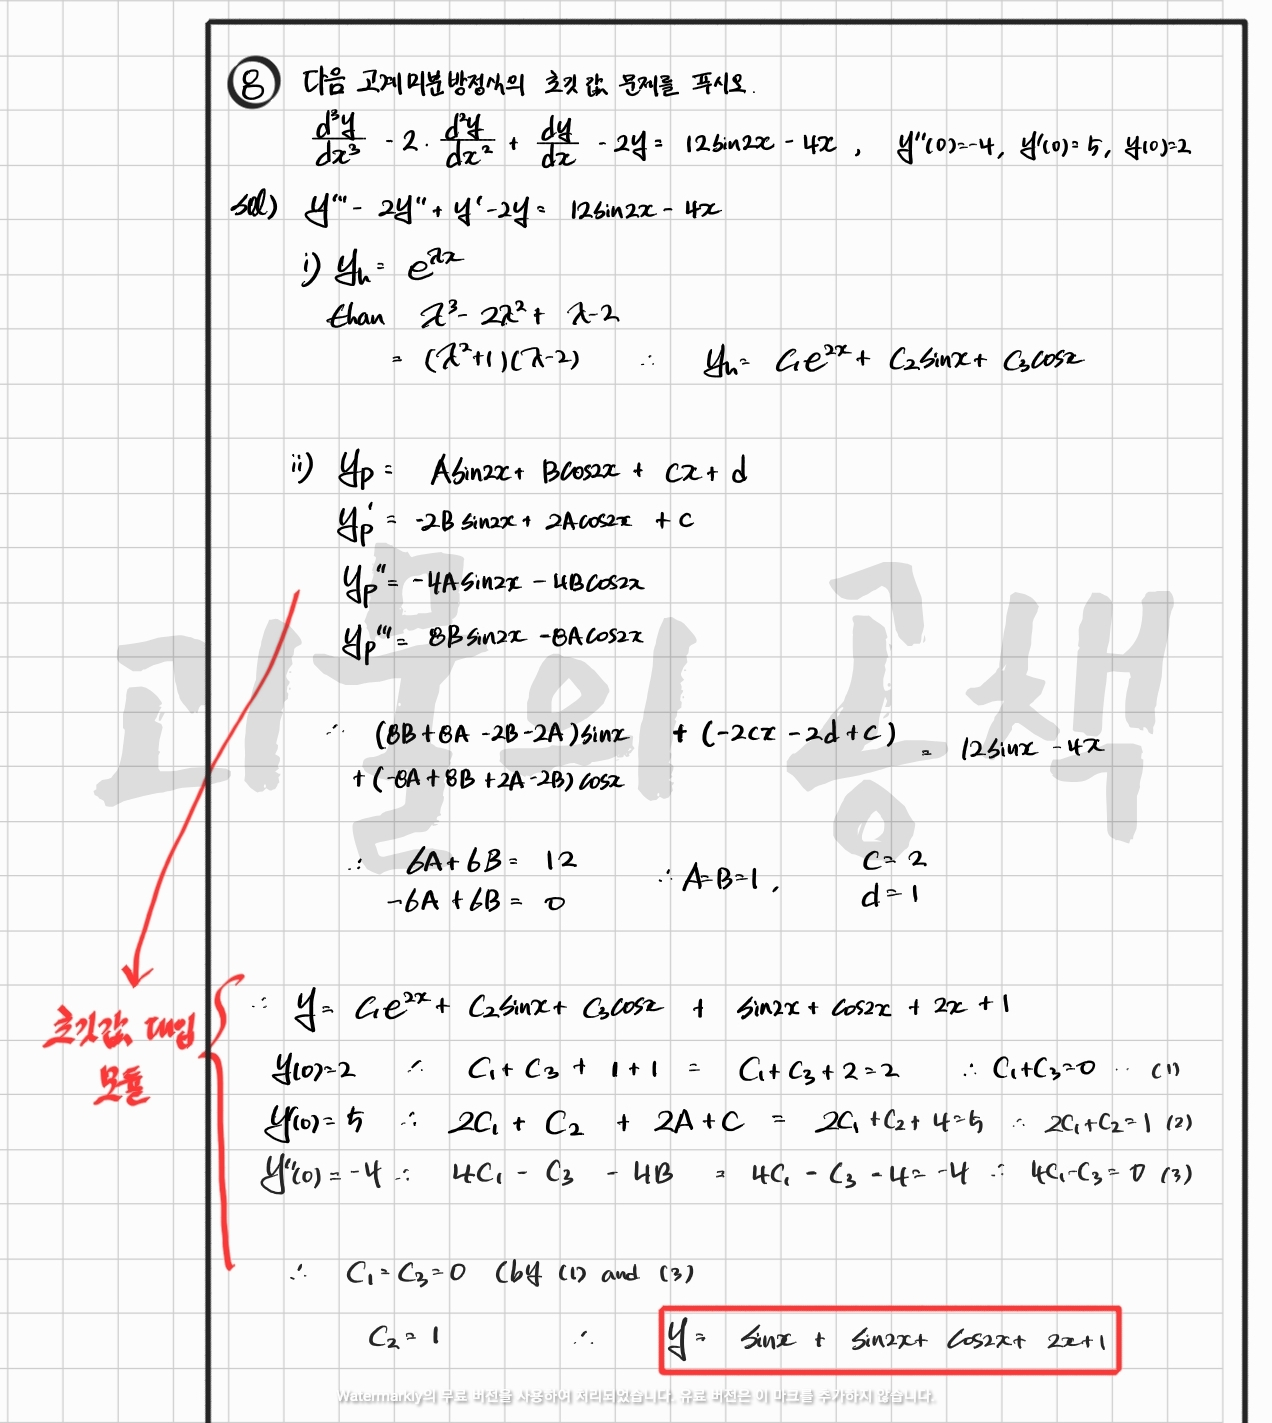 ⑧ 다음 고계미분방정식의 초깃값 문제를 푸시오.
d³y/dx³ - 2· d²y/dx² + dy/dx - 2y = 12sin2x - 4x , y''(0)=-4, y'(0)=5, y(0)=2
sol) y''' - 2y'' + y' - 2y = 12sin2x - 4x
i) yₕ = e^λx
than λ³ - 2λ² + λ - 2
= (λ²+1)(λ-2) ∴ yₕ = C₁e^2x + C₂sinx + C₃cosx
ii) yp = Asin2x + Bcos2x + cx + d
yp' = -2Bsin2x + 2Acos2x + c
yp'' = -4Asin2x - 4Bcos2x
yp''' = 8Bsin2x - 8Acos2x
∴ (8B+8A-2B-2A)sinx + (-2cx - 2d + c) = 12sinx - 4x
+ (-8A+8B+2A-2B)cosx
∴ 6A+6B = 12 ∴ A=B=1, c=2
-6A+6B = 0 d=1
∴ y = C₁e^2x + C₂sinx + C₃cosx + sin2x + cos2x + 2x + 1
초깃값 대입
모듈
y(0)=2 ∴ C₁+C₃+1+1 = C₁+C₃+2=2 ∴ C₁+C₃=0 ·· (1)
y'(0)=5 ∴ 2C₁ + C₂ + 2A+C = 2C₁+C₂+4=5 ∴ 2C₁+C₂=1 (2)
y''(0)=-4 ∴ 4C₁ - C₃ - 4B = 4C₁ - C₃ - 4 = -4 ∴ 4C₁-C₃=0 (3)
∴ C₁=C₃=0 (by (1) and (3)
C₂=1 ∴ y = sinx + sin2x + cos2x + 2x+1
괴물의 공책
Watermarkly의 무료 버전을 사용하여 처리되었습니다. 유료 버전은 이 마크를 추가하지 않습니다.